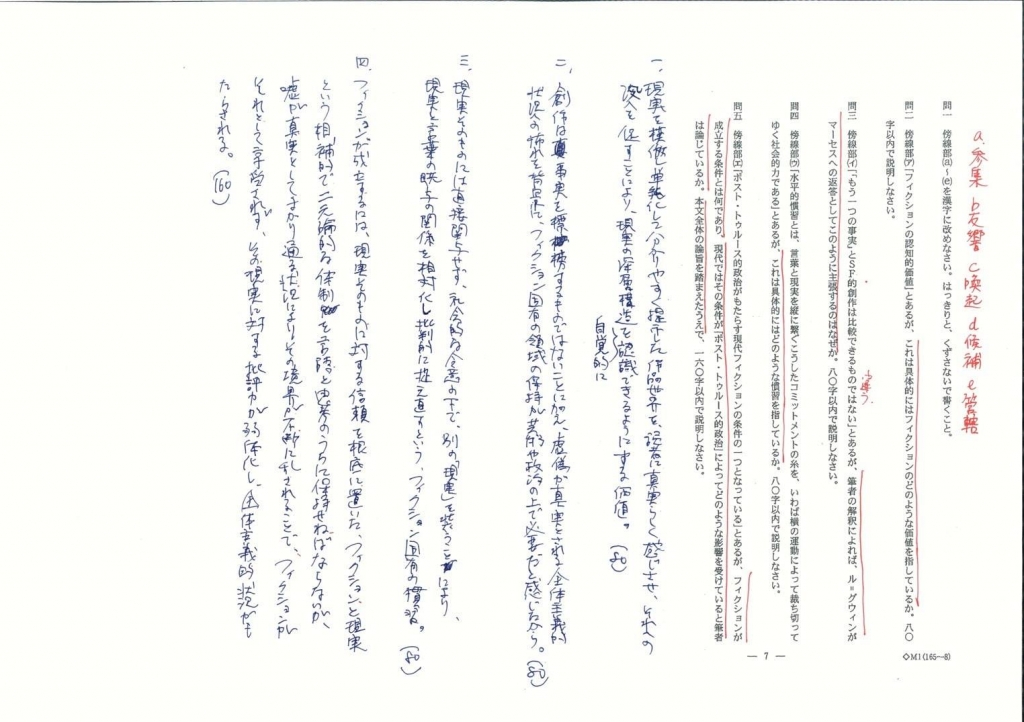 a.参集 b反響 c喚起 d候補 e管轄
問一 傍線部(a)~(e)を漢字に改めなさい。はっきりと、くずさないで書くこと。
問二 傍線部(ア)「フィクションの認知的価値」とあるが、これは具体的にはフィクションのどのような価値を指しているか。八〇
字以内で説明しなさい。
問三 傍線部(イ)「「もう一つの事実」とSF的創作は比較できるものではない」とあるが、筆者の解釈によれば、ル=グウィンが
マーセスへの返答としてこのように主張するのはなぜか。八〇字以内で説明しなさい。
問四 傍線部(ウ)「水平的慣習とは、言葉と現実を縦に繋ぐこうしたコミットメントの糸を、いわば横の運動によって裁ち切って
ゆく社会的力である」とあるが、これは具体的にはどのような慣習を指しているか。八〇字以内で説明しなさい。
問五 傍線部(エ)「ポスト・トゥルース的政治がもたらす現代フィクションの条件の一つとなっている」とあるが、フィクションが
成立する条件とは何であり、現代ではその条件が「ポスト・トゥルース的政治」によってどのような影響を受けていると筆者
は論じているか。本文全体の論旨を踏まえたうえで、一六〇字以内で説明しなさい。
— 7 —
◇M1(165—8)
一、現実を模倣し単純化して分かりやすく提示した作品世界を、読者に真実らしく感じさせ、それへの
没入を促すことにより、現実の深層構造を認識できるようにする価値。(80)
自覚的に
二、創作は事実を標榜するものではないことに加え、虚偽が真実とされる全体主義的
状況への怖れを背景に、フィクション固有の領域の保持が芸術や政治の上で必要だと感じるから。(80)
三、現実そのものには直接関与せず、社会的な合意の下で、別の「現実」を装うことにより、
現実と言葉の関係を相対化し批判的に捉え直すという、フィクション固有の慣習。(80)
四、フィクションが成立するには、現実そのものに対する信頼を根底に置いた、フィクションと現実
という相補的で二元論的な体制を の うちに保持せねばならないが、
嘘が真実としてまかり通る状況によりその境界が不断に乱されることで、フィクションが
それとして享受されず、その現実に対する批評力が弱体化し、全体主義的状況がも
たらされる。(160)